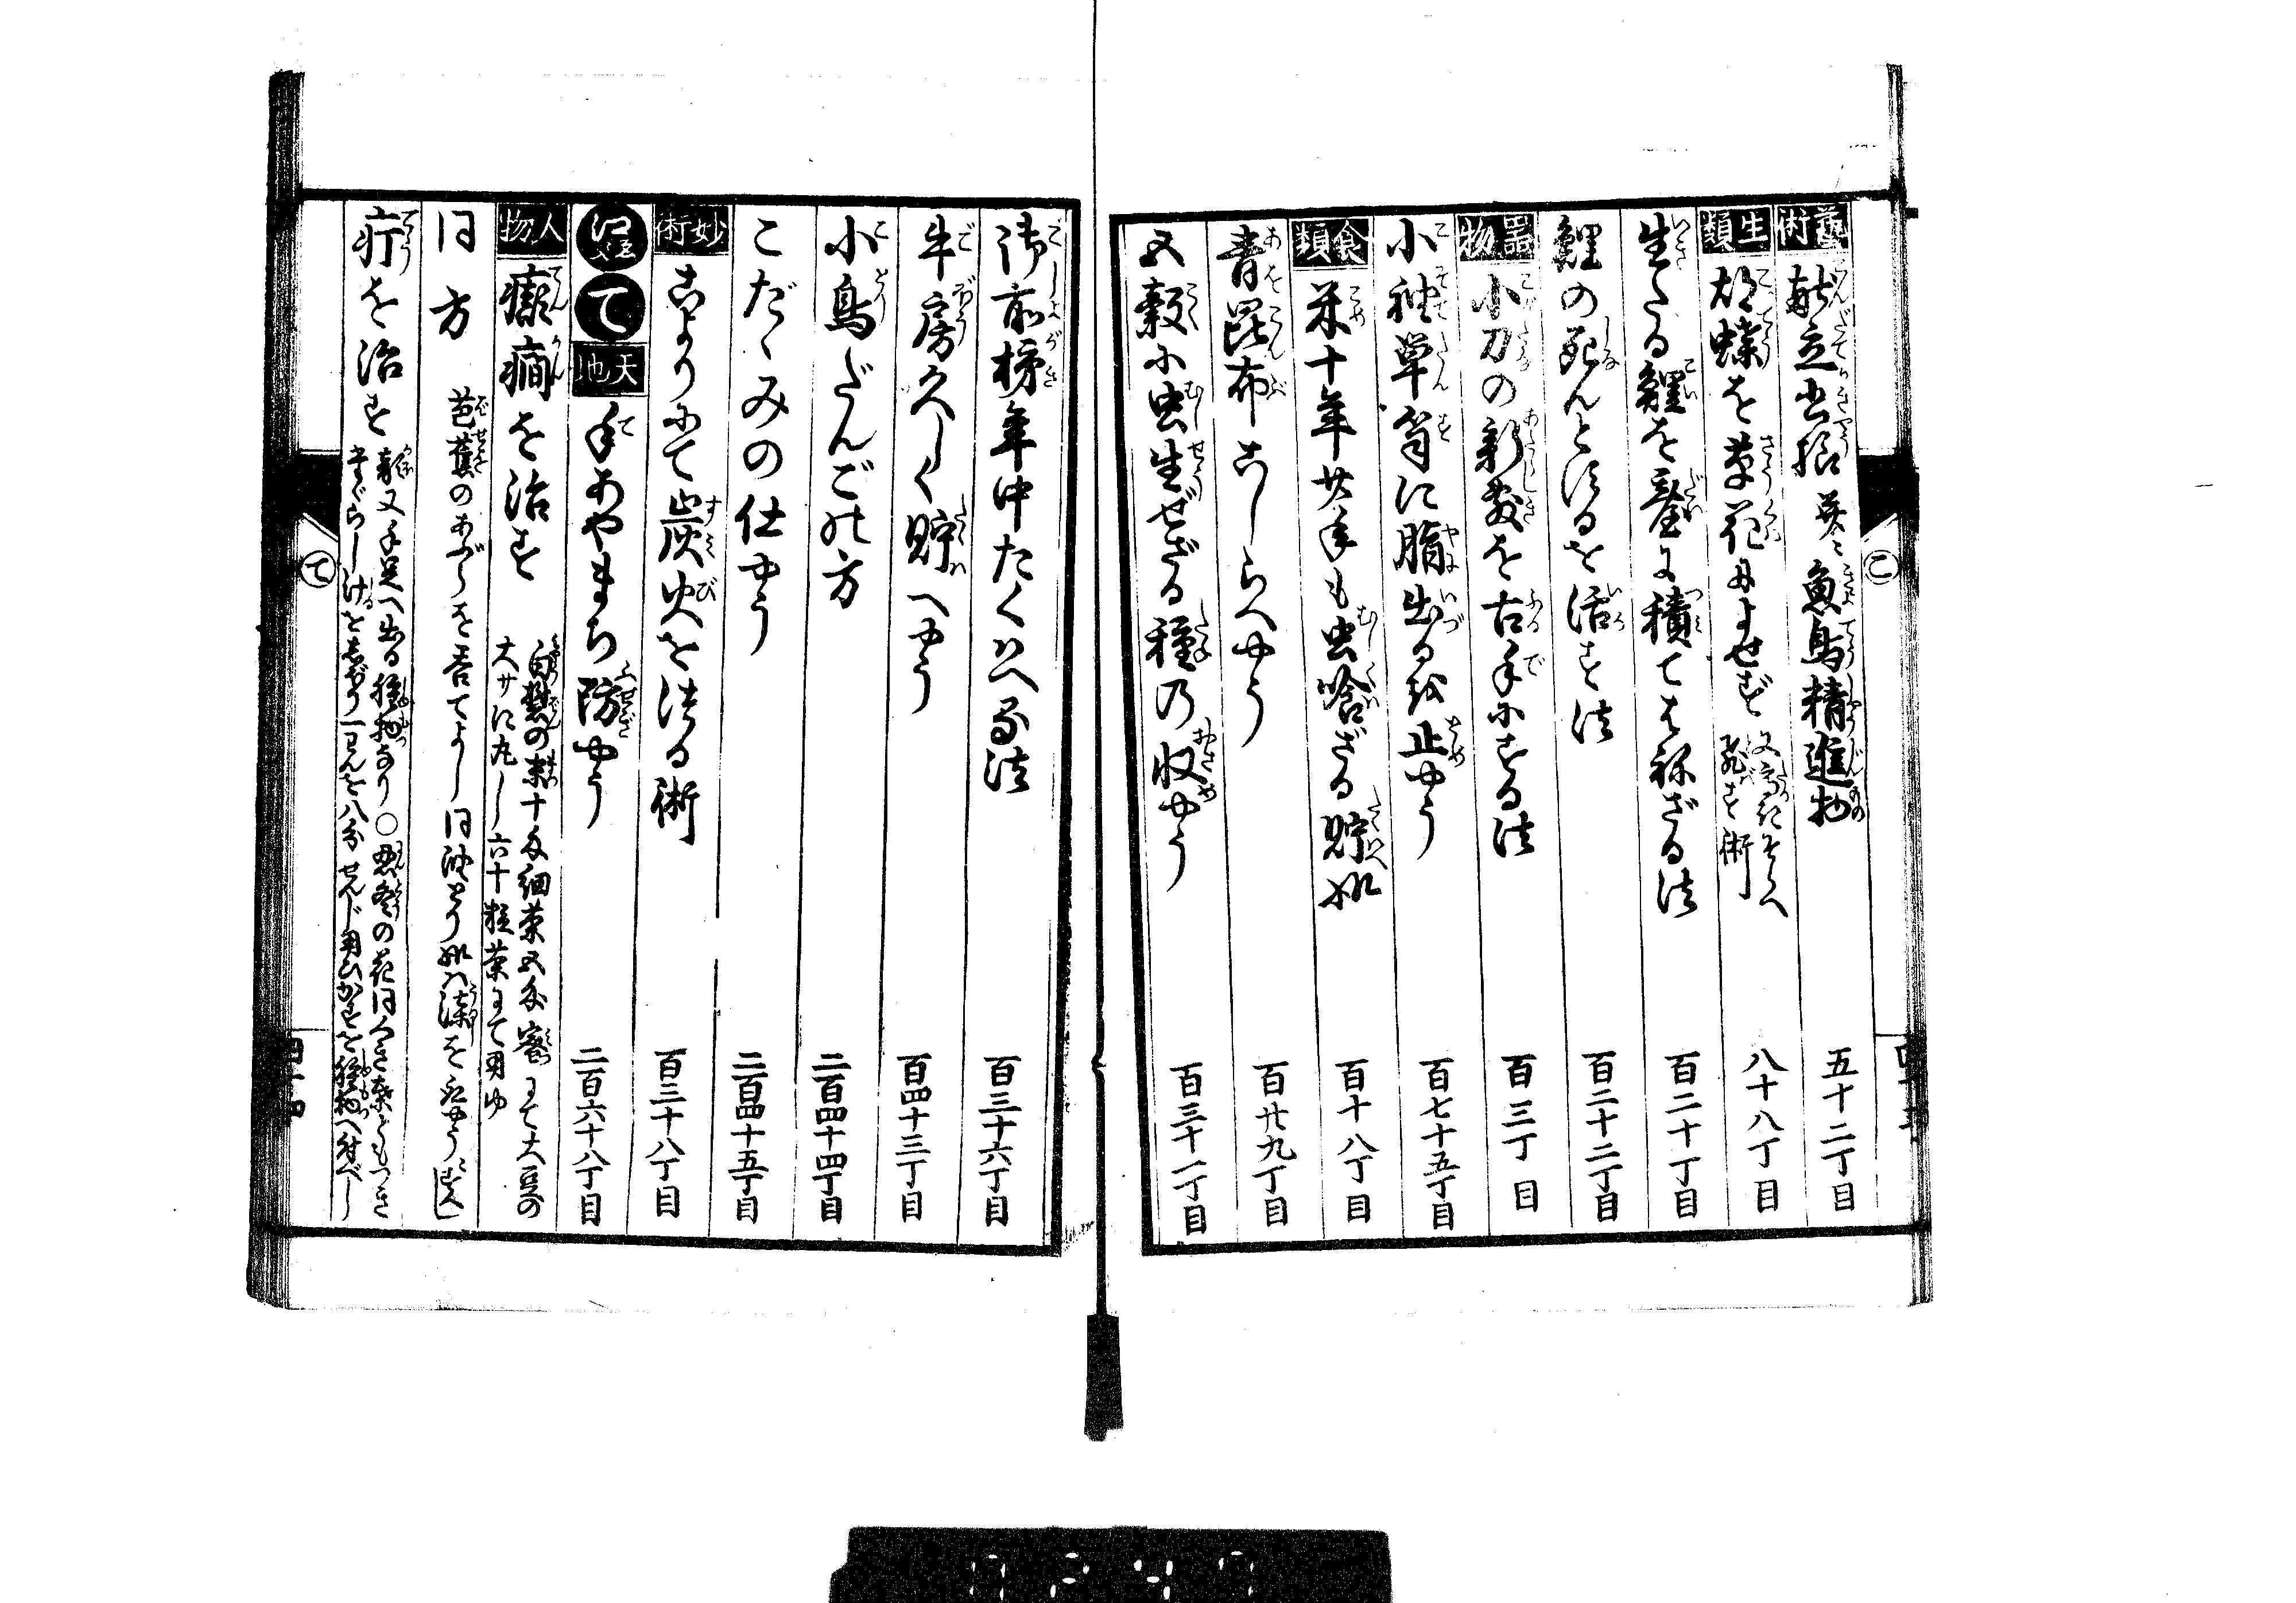 藝術 献立書様 并ニ 魚鳥精進物 五十二丁目
生類 胡蝶を草花によせず 飛す術 八十八丁目
生たる鯉を臺に積てはねざる法 百二十丁目
鯉の死んとするを活す法 百二十二丁目
器物 小刀の新敷を古手にする法 百三丁目
小袖箪笥に脂出るを止やう 百七十五丁目
食類 米十年廿年も虫喰ざる貯様 百十八丁目
青昆布こしらへやう 百廿九丁目
五穀に虫生ぜざる種の収やう 百三十一丁目
こ
御前榜年中たくはへる法 百三十六丁目
牛房久しく貯へやう 百四十三丁目
小鳥だんごの方 二百四十四丁目
こだゝみの仕やう 二百四十五丁目
妙術 こよりにて炭火を法る術 百三十八丁目
て 天地 手あやまち防やう 二百六十八丁目
人物 癲癇を治す 白礬の末十匁細茶五匁密にて大豆の
大サに丸し六十粒茶にて用ゆ
同方 芭蕉のあぶらを呑てよし同油とり様は漆を取やうにすべし
疔を治す 額又手足へ出る腫物なり○忍冬の花同くき葉ともつき
たゞらし汁をしぼり一わんを八分せんじ用ひかすを腫物へ付べし
て
四十四